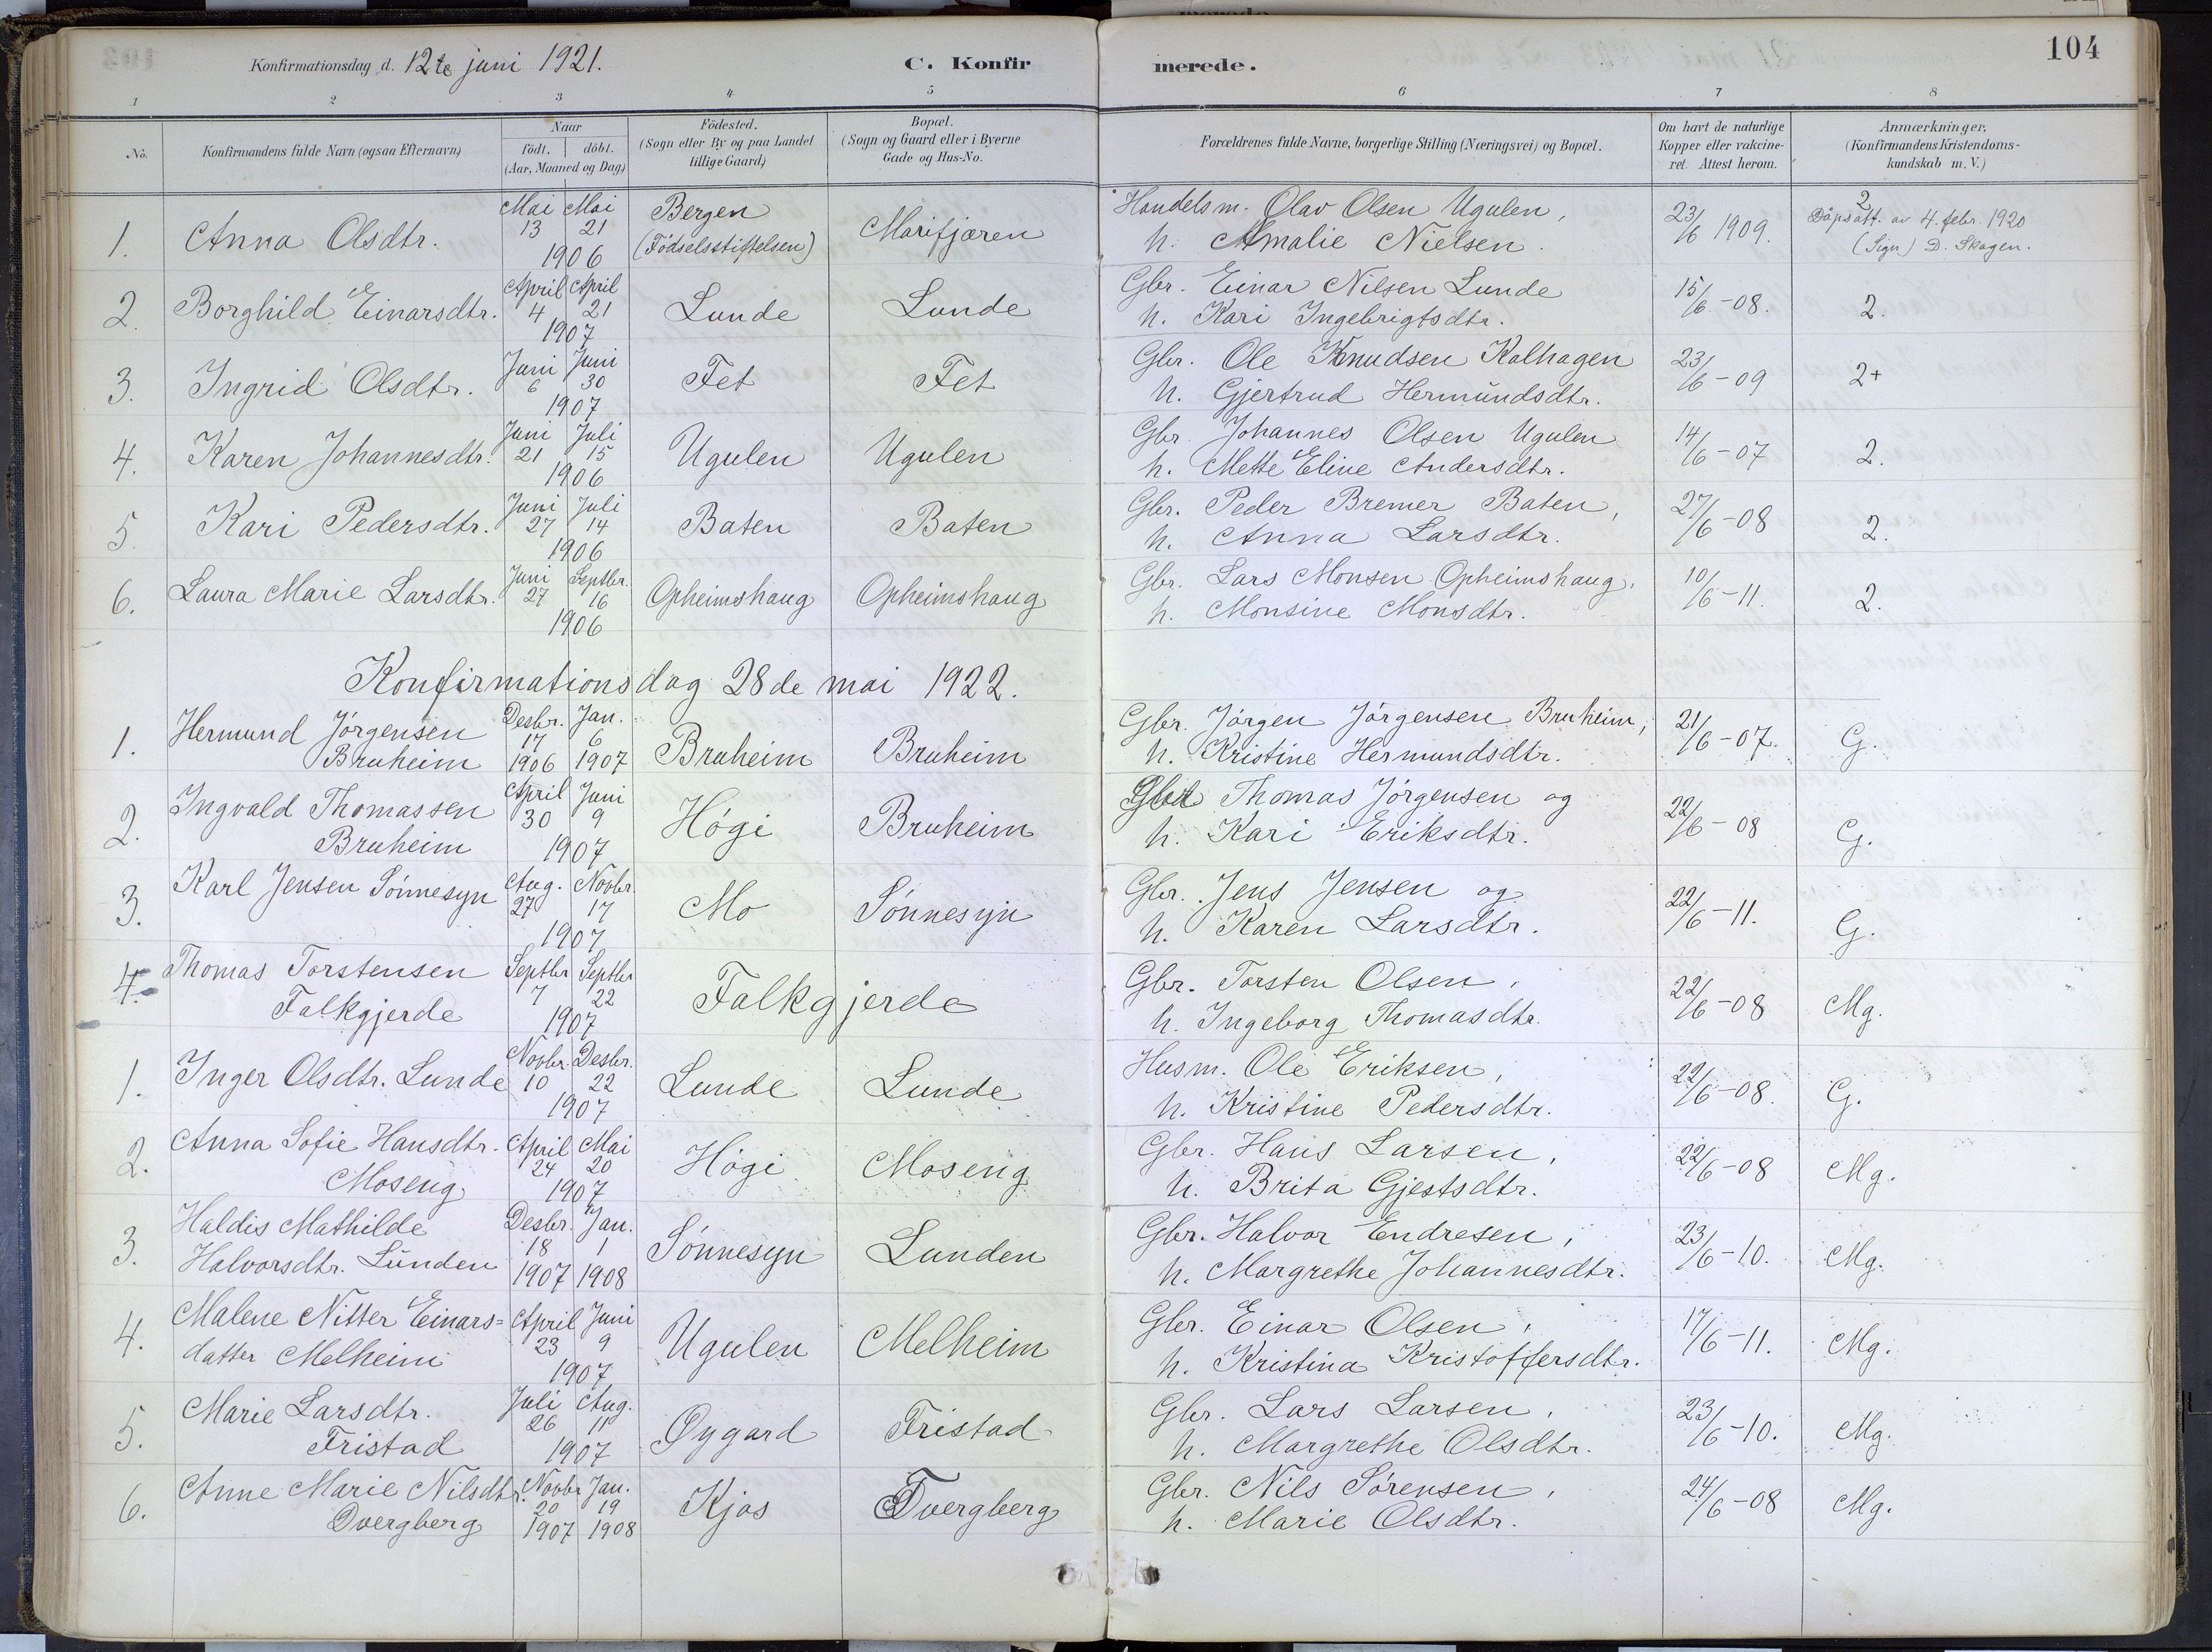 104
Konfirmationsdag d. 12te juni 1921. C. Konfirmerede.
1 2 3 4 5 6 7 8
No. Konfirmandens fulde Navn (ogsaa Efternavn) Naar Födt. döbt. (Aar, Maaned og Dag) Födested. (Sogn eller By og paa Landet tillige Gaard) Bopæl. (Sogn og Gaard eller i Byerne Gade og Hus-No. Forældrenes fulde Navne, borgerlige Stilling (Næringsvei) og Bopæl. Om havt de naturlige Kopper eller vakcineret. Attest herom. Anmærkninger, (Konfirmandens Kristendomskundskab m. V.)
1. Anna Olsdtr. Mai 13 Mai 21 1906 Bergen (Födselsstiftelsen) Marifjæren Handelsm. Olav Olsen Ugulen, h. Amalie Nielsen. 23/6 1909. 2 Dåpsatt. av 4. febr. 1920 (Sign) D. Skagen.
2. Borghild Einarsdtr. April 4 April 21 1907 Lunde Lunde Gbr. Einar Nilsen Lunde h. Kari Ingebrigtsdtr. 15/6-08. 2.
3. Ingrid Olsdtr. Juni 6 Juni 30 1907 Fet Fet Gbr. Ole Knudsen Kalhagen h. Gjertrud Hermundsdtr. 23/6-09 2+
4. Karen Johannesdtr. Juni 21 Juli 15 1906 Ugulen Ugulen Gbr. Johannes Olsen Ugulen h. Mette Eline Andersdtr. 14/6-07 2.
5. Kari Pedersdtr. Juni 27 Juli 14 1906 Baten Baten Gbr. Peder Bremer Baten, h. Anna Larsdtr. 27/6-08 2.
6. Laura Marie Larsdtr. Juni 27 Septbr. 16 1906 Opheimshaug Opheimshaug Gbr. Lars Monsen Opheimshaug, h. Monsine Monsdtr. 10/6-11. 2.
Konfirmationsdag 28de mai 1922.
1. Hermund Jörgensen Bruheim Desbr. 17 1906 Jan. 6 1907 Bruheim Bruheim Gbr. Jörgen Jörgensen Bruheim, h. Kristine Hermundsdtr. 21/6-07. G.
2. Ingvald Thomassen Bruheim April 30 Juni 9 1907 Högi Bruheim Thomas Jörgensen og h. Kari Eriksdtr. 22/6-08 G.
3. Karl Jensen Sönnesyn Aug. 27 Novbr. 17 1907 Mo Sönnesyn Gbr. Jens Jensen og h. Karen Larsdtr. 22/6-11. G.
4. Thomas Torstensen Falkgjerde Septbr 7 Septbr 22 1907 Falkgjerde Gbr. Torsten Olsen, h. Ingeborg Thomasdtr. 22/6-08 Mg.
1. Inger Olsdtr. Lunde Novbr. 10 Desbr. 22 1907 Lunde Lunde Husm. Ole Eriksen, h. Kristine Pedersdtr. 22/6-08. G.
2. Anna Sofie Hansdtr. Moseng April 24 Mai 20 1907 Högi Moseng Gbr. Hans Larsen, h. Brita Gjestsdtr. 22/6-08 Mg.
3. Haldis Mathilde Halvorsdtr. Lunden Desbr. 18 1907 Jan. 1 1908 Sönnesyn Lunden Gbr. Halvor Endresen, h. Margrethe Johannesdtr. 23/6-10. Mg.
4. Malene Nitter Einars=datter Melheim April 23 Juni 9 1907 Ugulen Melheim Gbr. Einar Olsen, h. Kristina Kristoffersdtr. 17/6-11. Mg.
5. Marie Larsdtr. Fristad Juli 26 Aug. 11 1907 Øygard Fristad Gbr. Lars Larsen, h. Margrethe Olsdtr. 23/6-10. Mg.
6. Anne Marie Nilsdtr. Dvergberg Novbr 20 1907 Jan. 19 1908 Kjos Dvergberg Gbr. Nils Sörensen, h. Marie Olsdtr. 24/6-08 Mg.